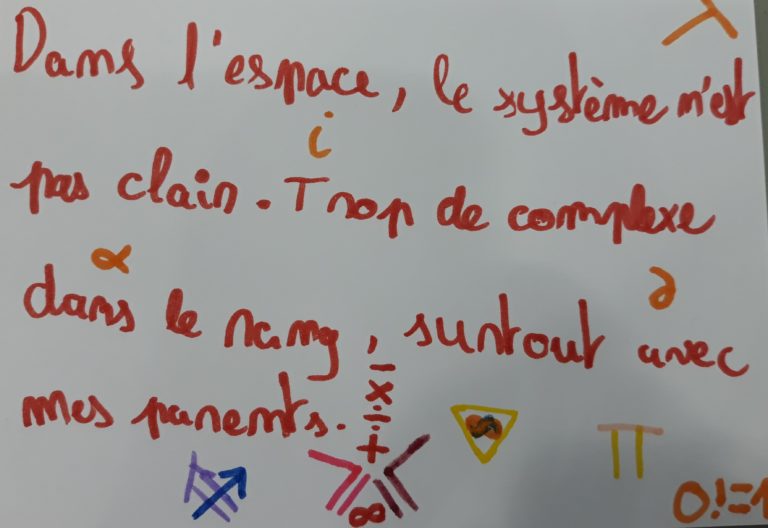 Dans l'espace, le système n'est
i
pas clair. Trop de complexe
α ∂
dans le rang, surtout avec
mes parents.
+ ÷ × -
∞
π
0!=1